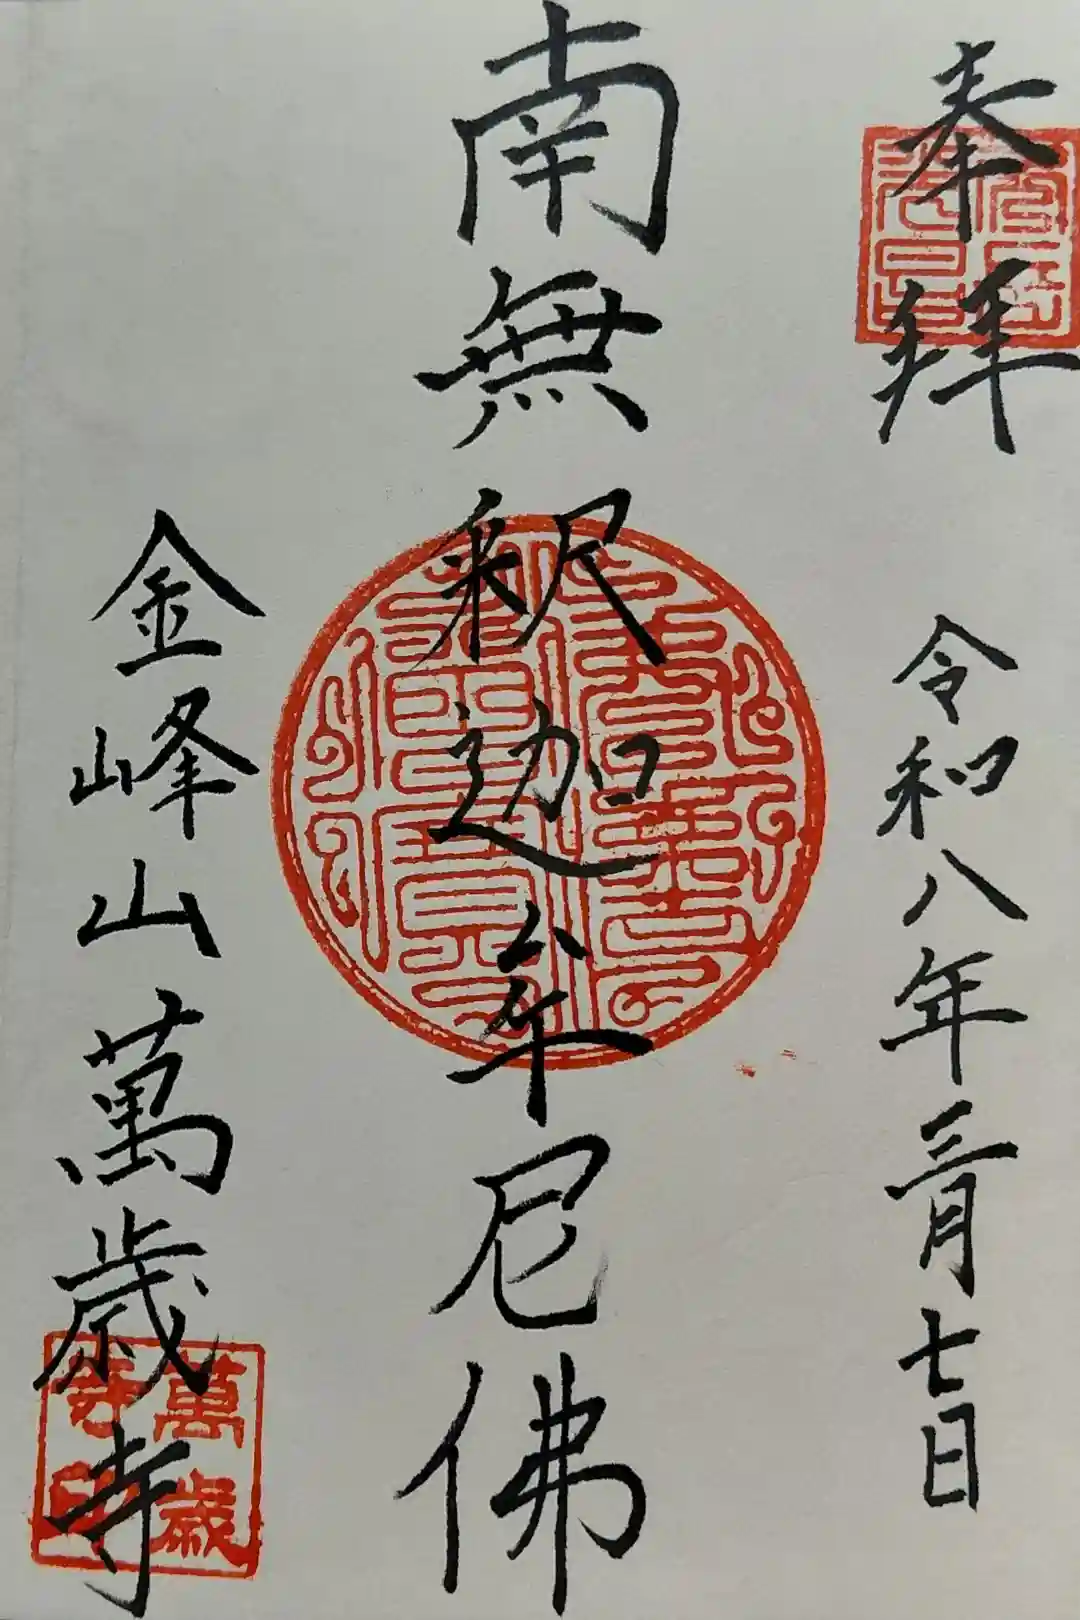 奉拝
令和八年三月七日
南無釈迦牟尼佛
金峰山萬歳寺
萬歳寺印